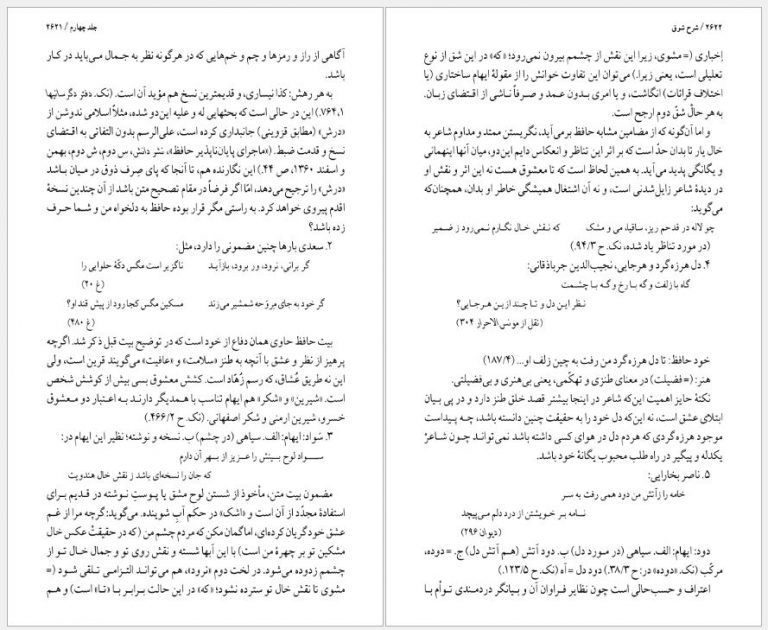 جلد چهارم / ۲۶۲۱
آگاهی از راز و رمزها و چم و خم‌هایی که در هرگونه نظر به جمال می‌باید در کار
باشد.
به هر رهش: کذا نیساری، و قدیمترین نسخ هم مؤید آن است. (نک. دفتر دگرسانیها
۷۶۴،۱.) این در حالی است که بحثهایی له و علیه این‌دو شده، مثلاً اسلامی ندوشن از
«درش» (مطابق قزوینی) جانبداری کرده است، علی‌الرسم بدون التفاتی به اقتضای
نسخ و قدمت ضبط. («ماجرای پایان‌ناپذیر حافظ»، نشر دانش، س دوم، ش دوم، بهمن
و اسفند ۱۳۶۰، ص ۴۴.) این نگارنده هم، تا آنجا که پای صِرف ذوق در میان باشد
«درش» را ترجیح می‌دهد، امّا اگر فرضاً در مقام تصحیح متن باشد از آن چندین نسخهٔ
اقدم پیروی خواهد کرد. به راستی مگر قرار بوده حافظ به دلخواه من و شما حرف
زده باشد؟
۲. سعدی بارها چنین مضمونی را دارد، مثل:
گر برانی، نرود، ور برود، بازآید
ناگزیر است مگس دکّهٔ حلوایی را
(غ ۲۰)
گر خود به جای مِروَحه شمشیر می‌زند
مسکین مگس کجا رود از پیش قند او؟
(غ ۴۸۰)
بیت حافظ حاوی همان دفاع از خود است که در توضیح بیت قبل ذکر شد. اگرچه
پرهیز از نظر و عشق با آنچه به طنز «سلامت» و «عافیت» می‌گویند قرین است، ولی
این نه طریق عُشاق، که رسم زُهّاد است. کشش معشوق بسی بیش از کوشش شخص
است. «شیرین» و «شکر» هم ایهام تناسب با همدیگر دارند به اعتبار دو معشوق
خسرو، شیرین ارمنی و شکر اصفهانی. (نک. ح ۴۶۶/۲.)
۳. سَواد: ایهام: الف. سیاهی (در چشم) ب. نسخه و نوشته؛ نظیر این ایهام در:
ســواد لوح بینش را عزیز از بهر آن دارم
که جان را نسخه‌ای باشد ز نقش خال هندویت
مضمون بیت متن، مأخوذ از شستن لوح مشق یا پوستِ نوشته در قدیم برای
استفادهٔ مجدّد از آن است و «اشک» در حکم آبِ شوینده. می‌گوید: گرچه مرا از غم
عشق خود گریان کرده‌ای، اما گمان مکن که مردم چشم من (که در حقیقتْ عکس خال
مشکین تو بر چهرهٔ من است) با این آبها شسته و نقش روی تو و جمال خال تو از
چشمم زدوده می‌شود. در لخت دوم «نرود»، هم می‌تواند التزامی تلقی شود (=
مشوی تا نقش خال تو سترده نشود؛ «که» در این حالت برابر با «تا» است) و هم
۲۶۲۲ / شرح شوق
إخباری (= مشوی، زیرا این نقش از چشمم بیرون نمی‌رود؛ «که» در این شق از نوع
تعلیلی است، یعنی زیرا.) می‌توان این تفاوت خوانش را از مقولهٔ ایهام ساختاری (یا
اختلاف قرائات) انگاشت، و یا امری بدون عمد و صرفاً ناشی از اقتضای زبان.
به هر حالْ شقّ دوم ارجح است.
و اما آن‌گونه که از مضامین مشابه حافظ برمی‌آید، نگریستن ممتد و مداوم شاعر به
خال یار تا بدان حدّ است که بر اثر این تناظر و انعکاس دایم این‌دو، میان آنها اینهمانی
و یگانگی پدید می‌آید. به همین لحاظ است که تا معشوق هست نه این اثر و نقش او
در دیدهٔ شاعر زایل‌شدنی است، و نه آن اشتغال همیشگی خاطر او بدان، همچنان‌که
می‌گوید:
چو لاله در قدحم ریز، ساقیا، می و مشک
که نـقش خال نگارم نـمی‌رود ز ضـمیر
(در مورد تناظر یاد شده، نک. ح ۹۴/۳.)
۴. دل هرزه‌گرد و هرجایی، نجیب‌الدین جرباذقانی:
گاه با زلفت و گه بـا رخ و گـه بـا چشمت
نـظر ایـن دل و تـا چـند از ایـن هـرجـایی؟
(نقل از مونس‌الاحرار ۳۰۴)
خود حافظ: تا دل هرزه‌گرد من رفت به چین زلف او... (۱۸۷/۴)
هنر: (= فضیلت) در معنای طنزی و تهکّمی، یعنی بی‌هنری و بی‌فضیلتی.
نکتهٔ حایز اهمیت این‌که شاعر در اینجا بیشتر قصد خلق طنز دارد و در پی بیان
ابتلای عشق است، نه این‌که دل خود را به حقیقت چنین دانسته باشد، چه پیداست
موجود هرزه‌گردی که هردم دل در هوای کسی داشته باشد نمی‌تواند چون شاعرْ
یکدله و پیگیر در راه طلب محبوب یگانهٔ خود باشد.
۵. ناصر بخارایی:
خامه را ز آتش من دود همی رفت به سـر
نـامه بـر خـویشتن از درد دلم مـی‌پیچد
(دیوان ۲۹۶)
دود: ایهام: الف. سیاهی (در مورد دل) ب. دود آتش (هم آتش دل) ج. = دوده،
مرکّب (نک. «دوده» در: ح ۳۸/۳.) دود دل = آه (نک. ح ۱۲۳/۵.)
اعتراف و حسب‌حالی است چون نظایر فراوان آن و بیانگر دردمندی توأم با